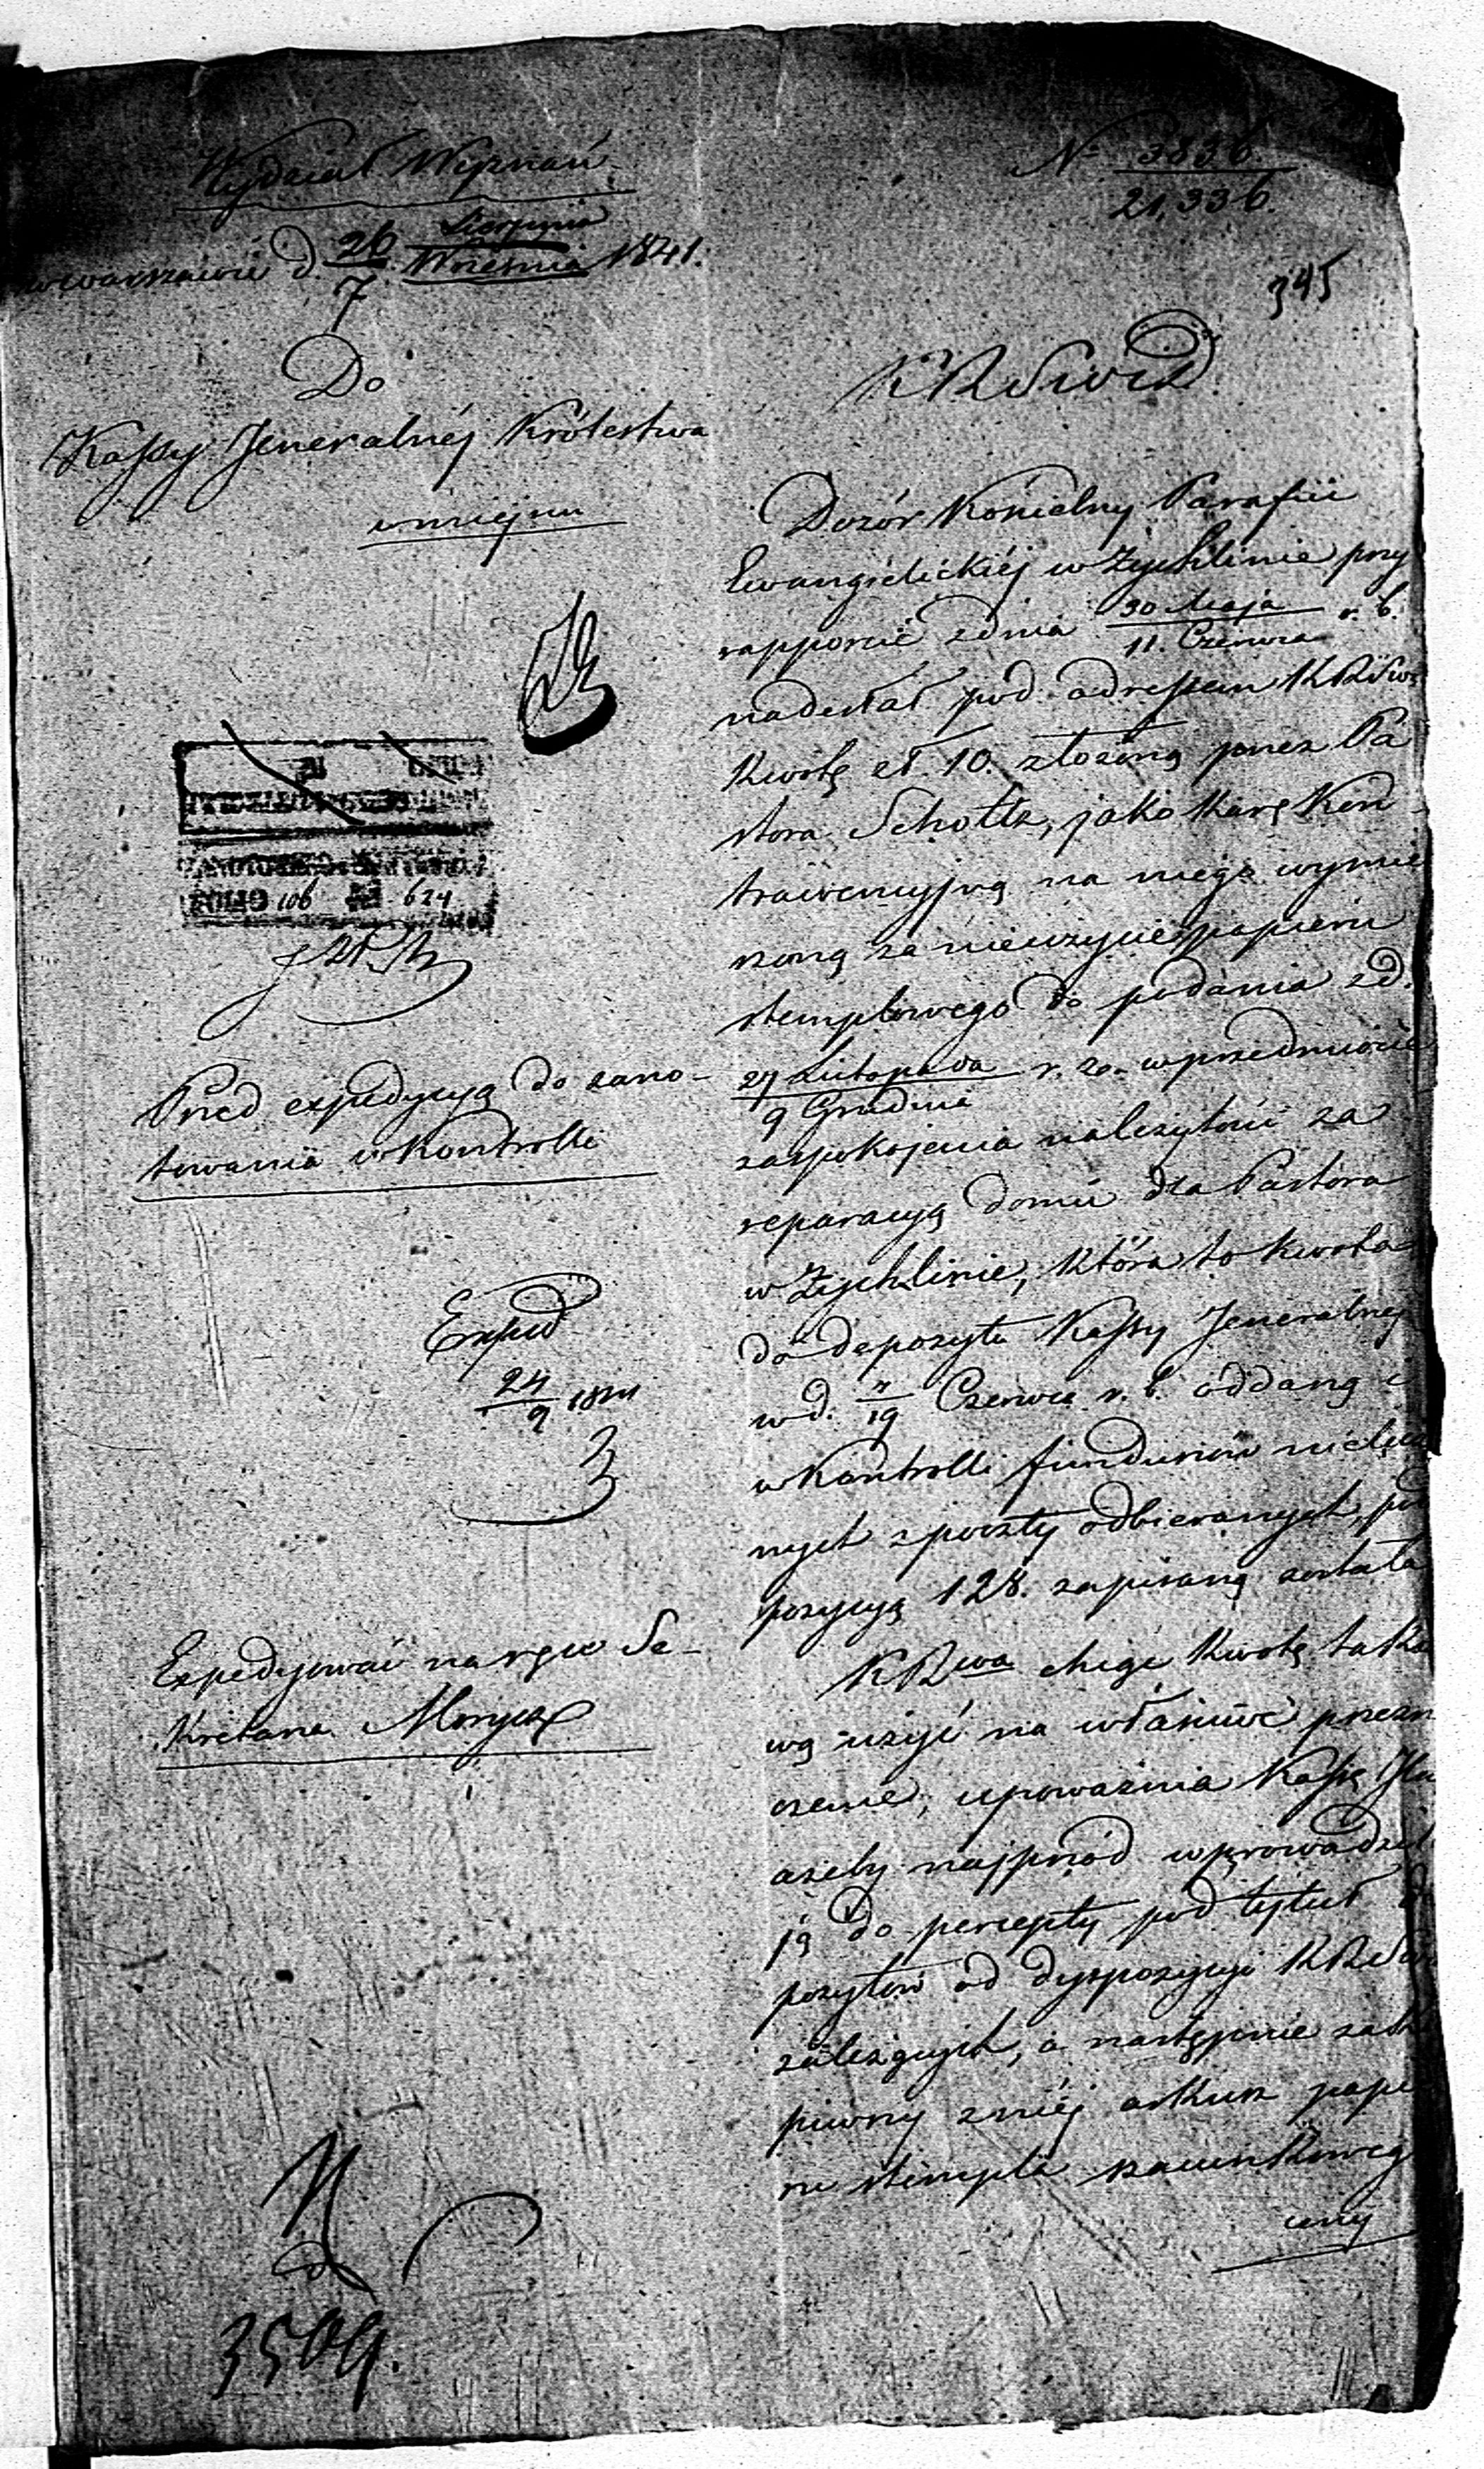 Wydział Wyznań
N° 3836.
21,336.
w Warszawie d. 26 Sierpnia
7 Września 1841.
345
Do
Kassy Jeneralnéj Królestwa
w miejscu
KRSWiD
Dozór Kościelny Parafii
Ewangielickiéj w Żychlinie przy
rapporcie z dnia 30 Maja
11. Czerwca r. b.
nadesłał pod adressem KRSW
kwotę zł. 10. złożoną przez Pa
stora Scholtz, jako karę kon
trawencyjną na niego wymie
rzoną za nieużycie papieru
stemplowego do podania z d.
27 Listopada
9 Grudnia r. z. w przedmiocie
zaspokojenia należytości za
reparacyą domu dla Pastora
w Żychlinie, która to kwota
do depozytu Kassy Jeneralnej
w d. 7/19 Czerwca r. b. oddaną i
w Kontrolli funduszów
nych z poczty odbieranych, pod
pozycyą 128. zapisaną została
KRwa chcąc kwotę tako
wą użyć na właściwe przezn
czenie, upoważnia Kassę
ażeby najprzód wprowadził
ją do percepty pod tytuł de
pozytów od dyspozycyi KRSW
zależących, a następnie zaku
piwszy z niéj arkusz papie
ru stempla szacunkoweg
ceny
FOLIO 106 № 624
Przed expedycyą do zano-
towania w Kontrolli
Exped
24/9 1841
Expedyować na ręce Se-
kretarza Morycz
3509.